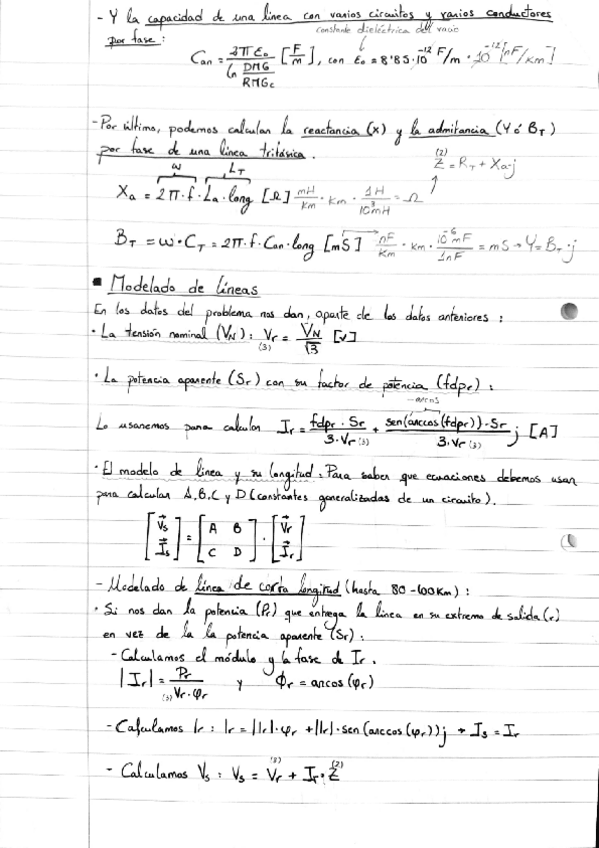 - Y la capacidad de una línea con varios circuitos y varios conductores
por fase:
constante dieléctrica del vacío
Can = 2πε₀ / ln DMG/RMGc [F/m], con ε₀ = 8'85·10⁻¹² F/m · 10⁻¹² [nF/km]
- Por último, podemos calcular la reactancia (X) y la admitancia (Y ó B_T)
por fase de una línea trifásica.
(2) Z = R_T + Xa·j
w L_T
Xa = 2π·f·La·long [Ω] mH/km · km · 1H/10³mH = Ω
B_T = w·C_T = 2π·f·Can·long [mS] nF/km · km · 10⁻⁶mF/1nF = mS → Y = B_T·j
▪ Modelado de líneas
En los datos del problema nos dan, aparte de los datos anteriores:
· La tensión nominal (V_N): Vr (3) = V_N/√3 [V]
· La potencia aparente (Sr) con su factor de potencia (fdpr):
Lo usaremos para calcular Ir = fdpr · Sr / 3·Vr(3) + sen(arccos(fdpr))·Sr / 3·Vr(3) j [A]
· El modelo de línea y su longitud: Para saber que ecuaciones debemos usar
para calcular A, B, C y D (constantes generalizadas de un circuito).
[Vs Is] = [A B C D] · [Vr Ir]
- Modelado de línea de corta longitud (hasta 80-100Km):
· Si nos dan la potencia (Pr) que entrega la línea en su extremo de salida (r)
en vez de la la potencia aparente (Sr):
- Calculamos el módulo y la fase de Ir.
|Ir| = Pr / (3) Vr·φr y ϕr = arcos(φr)
- Calculamos Ir: Ir = |Ir|·φr + |Ir|·sen(arccos(φr))j → Is = Ir
- Calculamos Vs: Vs = Vr (3) + Ir · Z (2)